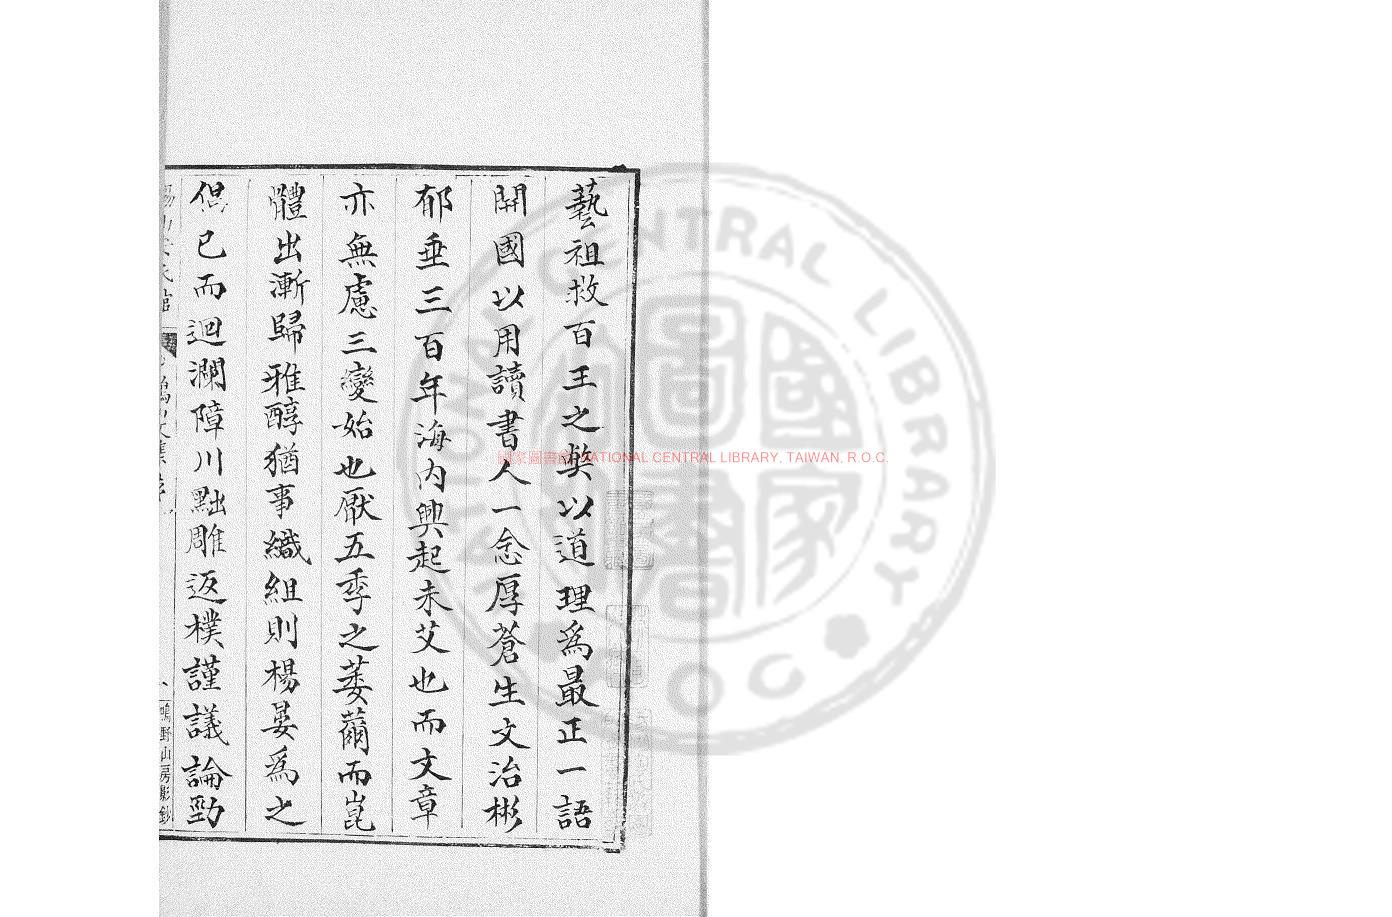 藝祖救百王之獘以道理爲最正一語
開國以用讀書人一念厚蒼生文治彬
郁垂三百年海内興起未艾也而文章
亦無慮三變始也厭五季之萎薾而崑
體出漸歸雅醇猶事織組則楊晏爲之
倡已而迴瀾障川黜雕返樸謹議論勁
鳴野山房影鈔
國家圖書館 NATIONAL CENTRAL LIBRARY, TAIWAN, R.O.C.
NATIONAL CENTRAL LIBRARY
ROC
國家圖書